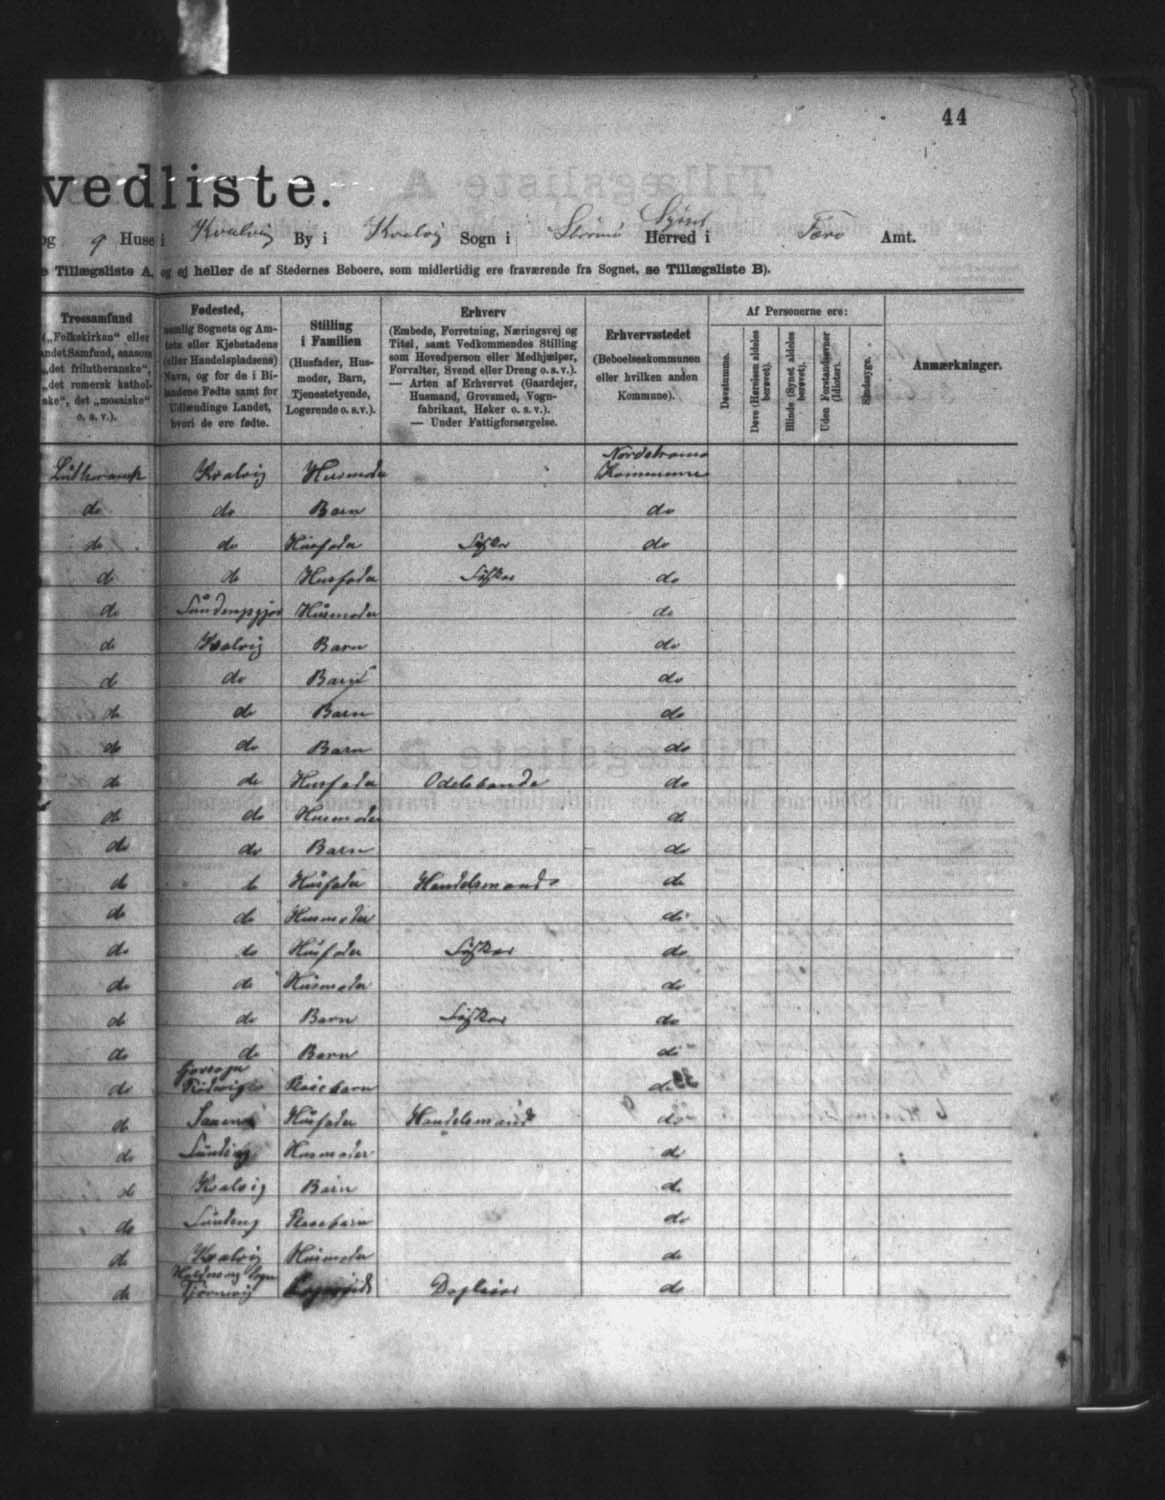 44
vedliste.
og 9 Huse i Kvalvig By i Kvalvig Sogn i Strømø Syssel Herred i Færø Amt.
e Tillægsliste A, og ej heller de af Stedernes Beboere, som midlertidig ere fraværende fra Sognet, se Tillægsliste B).
Trossamfund
(„Folkekirken“ eller
andet Samfund, saasom
„det frilutheranske“,
„det romersk kathol-
ske“, det „mosaiske“
o. s. v.).
Fødested,
nemlig Sognets og Am-
tets eller Kjøbstadens
(eller Handelspladsens)
Navn, og for de i Bi-
landene Fødte samt for
Udlændinge Landet,
hvori de ere fødte.
Stilling
i Familien
(Husfader, Hus-
moder, Barn,
Tjenestetyende,
Logerende o. s. v.).
Erhverv
(Embede, Forretning, Næringsvej og
Titel, samt Vedkommendes Stilling
som Hovedperson eller Medhjælper,
Forvalter, Svend eller Dreng o. s. v.).
— Arten af Erhvervet (Gaardejer,
Husmand, Grovsmed, Vogn-
fabrikant, Høker o. s. v.).
— Under Fattigforsørgelse.
Erhvervsstedet
(Beboelseskommunen
eller hvilken anden
Kommune).
Af Personerne ere:
Døvstumme.
Døve (Hørelsen aldeles
berøvet).
Blinde (Synet aldeles
berøvet).
Uden Forstandsevner
(Idioter).
Sindssyge.
Anmærkninger.
Luthersansk Kvalvig Husmoder Nordstrømø Kommune
do do Barn do
do do Husfader Fisker do
do do Husfader Fisker do
do Husmoder do
do Kvalvig Barn do
do do Barn do
do do Barn do
do do Barn do
do do Husfader Odelsbonde do
do do Husmoder do
do do Barn do
do do Husfader Handelsmand do
do do Husmoder do
do do Husfader Fisker do
do do Husmoder do
do do Barn Fisker do
do do Barn do
do Pleiebarn do
do Husfader Handelsmand do
do Husmoder do
do Kvalvig Barn do
do Pleiebarn do
do Kvalvig Husmoder do
do Haldersvig Sogn Tjørnevig Daglejer do